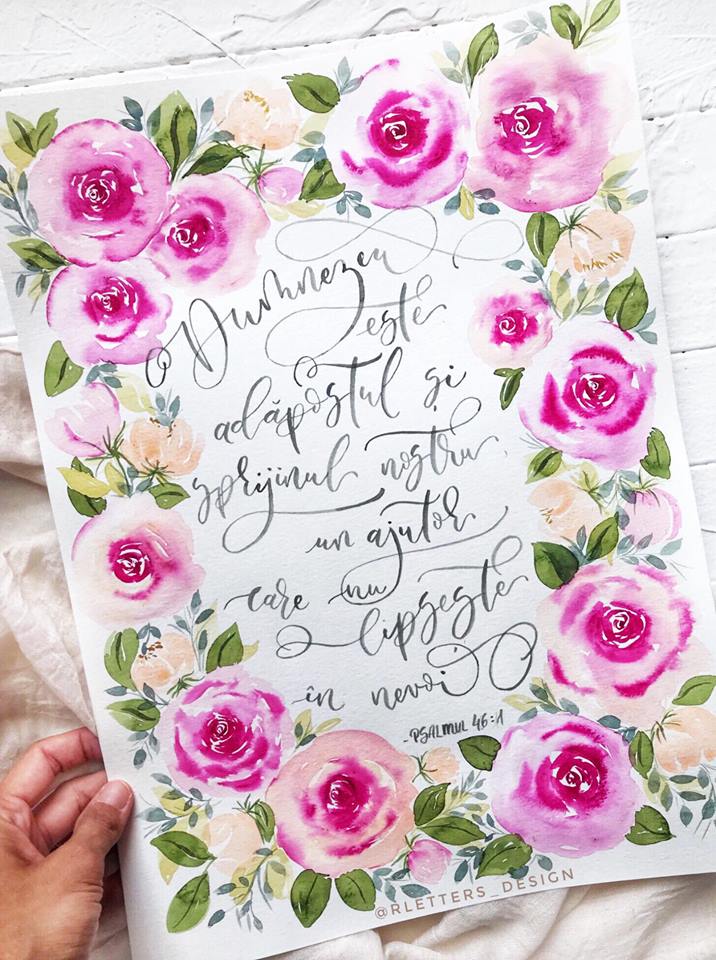 Dumnezeu
este
adăpostul și
sprijinul nostru,
un ajutor
care nu
lipsește
în nevoi
-PSALMUL 46:1
@RLETTERS_DESIGN